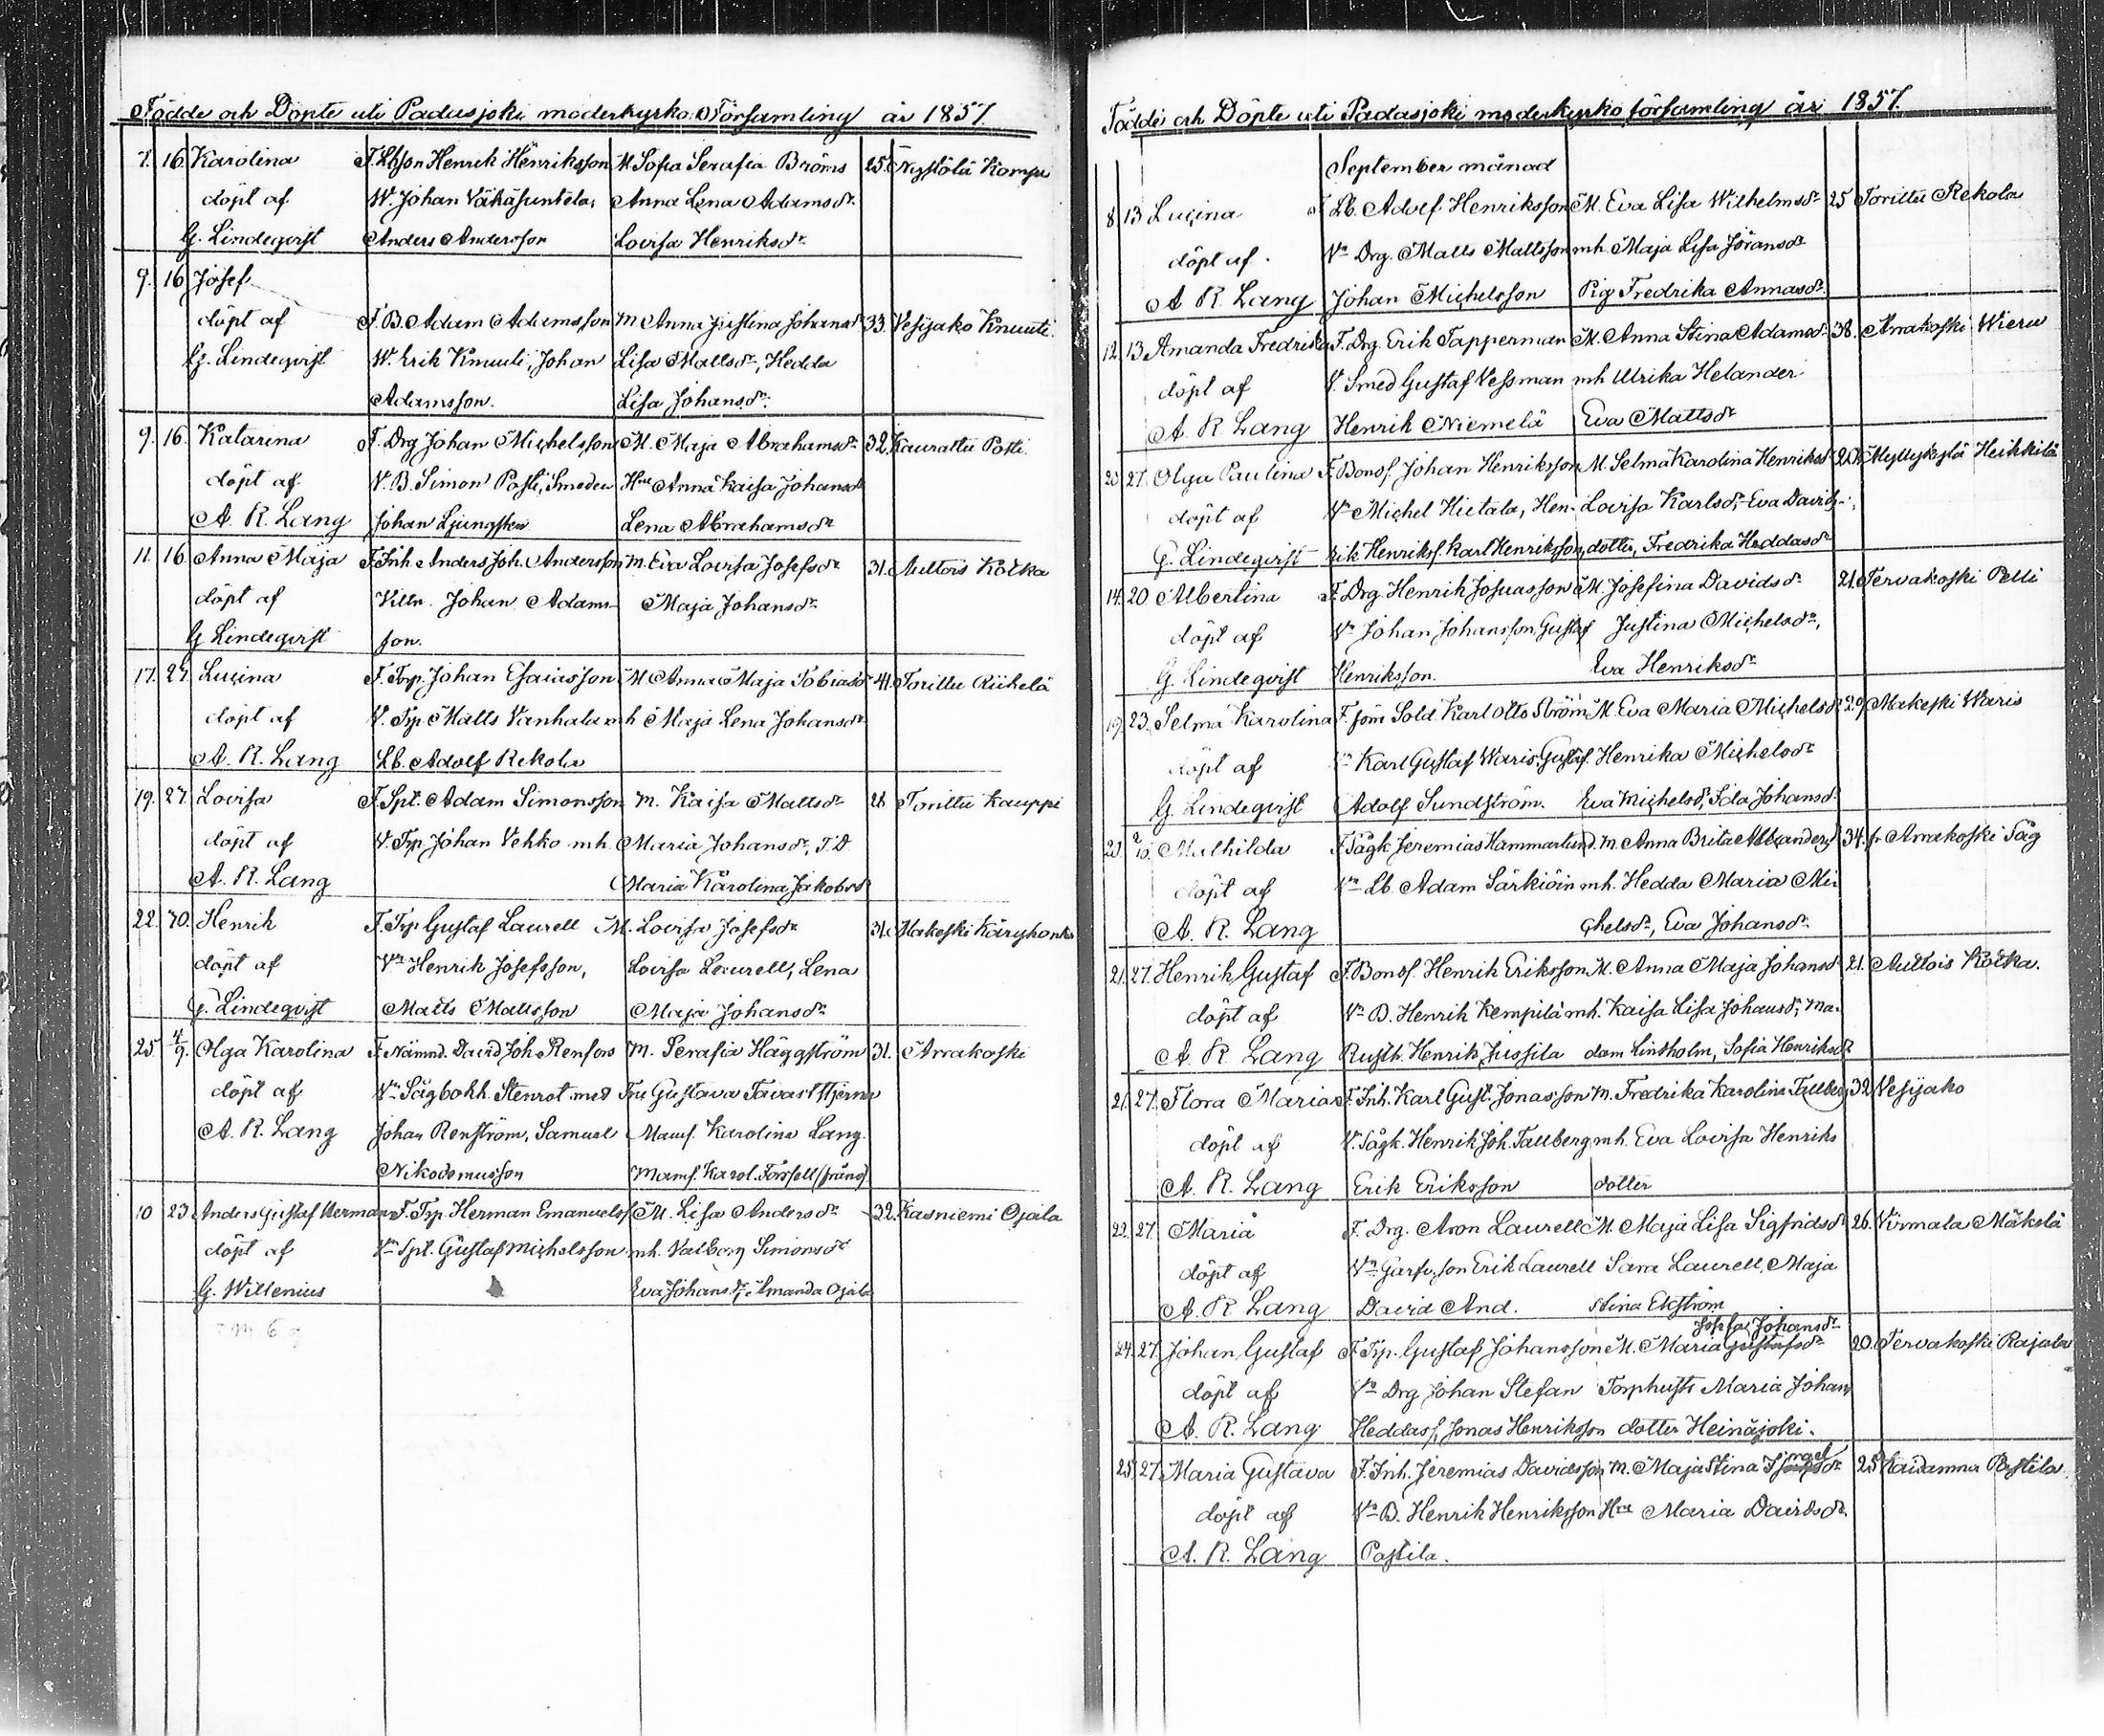 Födde och Döpte uti Padasjoki moderkyrko Församling år 1857.
7. 16. Karolina F. Lbson Henrik Henriksson M. Sofia Serafia Bröms 25. Nystölä Kompi
döpt af W. Johan Vähäsuntela, Anna Lena Adamsdr.
G. Lindeqvist Anders Andersson Lovisa Henriksdr.
9. 16. Josef
döpt af F. B. Adam Adamsson M. Anna Justina Johansdr 33. Vesijako Knuuti.
G. Lindeqvist W. Erik Knuuti, Johan Lisa Mattsdr, Hedda
Adamsson. Lisa Johansdr.
9. 16. Katarina F. Drg Johan Michelsson M. Maja Abrahamsdr 32. Kaurattu Posti.
döpt af V. B. Simon Posti, Smeden Hru Anna Kaisa Johansdr
A. R. Lang Johan Ljungsten Lena Abrahamsdr
11. 16. Anna Maja F. Inh. Anders Joh. Andersson M. Eva Lovisa Josefsdr 31. Auttois Kotka
döpt af Vittn. Johan Adams- Maja Johansdr
G Lindeqvist son.
17. 27. Lucina F. Trp. Johan Esaiasson M Anna Maja Tobiasdr 41. Torittu Riihelä
döpt af V. Trp. Matts Vanhala mh Maja Lena Johansdr
A. R. Lang Lb. Adolf Rekola
19. 27. Lovisa F. Spt. Adam Simonsson M. Kaisa Mattsdr 28 Torittu Kauppi
döpt af V. Trp Johan Vehko mh. Maria Johansdr, T.D
A. R. Lang Maria Karolina Jakobsdr
22. 30. Henrik F. Trp Gustaf Laurell M. Lovisa Josefsdr 31. Makeski Käryhonka
döpt af Vn Henrik Josefsson, Lovisa Laurell, Lena
G. Lindeqvist Matts Mattsson Maja Johansdr
25. 4/9. Olga Karolina F. Nämnd. David Joh. Renfors M. Serafia Häggström 31. Arrakoski
döpt af Vn Sågbokh. Stenrot med Fru Gustava Tavaststjerna
A. R. Lang Johan Renström, Samuel Mamf. Karolina Lang.
Nikodemusson Mamf. Karol. Forssell (frånv)
10 23 Anders Gustaf Herman F. Trp. Herman Emanuelss. M. Lisa Andersdr 32. Kasniemi Ojala
döpt af Vn Spt. Gustaf Michelsson mh. Valborg Simonsdr
G. Willenius Eva Johansdr, Amanda Ojala
Födde och Döpte uti Padasjoki moderkyrko församling år 1857.
September månad
8. 13 Lucina F. Lb. Adolf Henriksson M. Eva Lisa Wilhelmsdr 25 Torittu Rekola
döpt af. Vn Drg. Matts Mattsson mh. Maja Lisa Göransdr
A R. Lang Johan Michelsson Pig Fredrika Annasdr.
12. 13 Amanda Fredrika F. Drg. Erik Tapperman M. Anna Stina Adamsdr. 38. Arrakoski Wieru
döpt af V. Smed Gustaf Vessman mh Ulrika Helander
A. R Lang Henrik Niemelä Eva Mattsdr
20 27. Olga Paulina F. Bonds. Johan Henriksson M. Selma Karolina Henriksdr 20. Myllykylä Heikkilä
döpt af Vn Michel Hietala, Hen- Lovisa Karlsdr, Eva Davids-
G. Lindeqvist rik Henriks. Karl Henriksson, dotter, Fredrika Heddasdr
14. 20 Albertina F. Drg. Henrik Josuasson M. Josefina Davidsdr. 21. Tervakoski Pelli
döpt af Vn Johan Johansson, Gustaf Justina Michelsdr,
G. Lindeqvist Henriksson. Eva Henriksdr
19. 23. Selma Karolina F. Sold Karl Otto Ström M. Eva Maria Michelsdr 29 Makeski Waris
döpt af Vn Karl Gustaf Waris, Gustaf Henrika Michelsdr
G. Lindeqvist Adolf Sundström. Eva Michelsdr, Ida Johansdr.
Mathilda F. Sågk Jeremias Hammarlund. M. Anna Brita Alexandersdr 34. fr Arrakoski Såg
döpt af Vn Lb. Adam Särkiöin mh. Hedda Maria Mi-
A. R. Lang chelsdr, Eva Johansdr.
21. 27. Henrik Gustaf F. Bonds. Henrik Eriksson M. Anna Maja Johansdr 21. Auttois Kotka.
döpt af Vn B. Henrik Kempilä mh. Kaisa Lisa Johansdr, Ma-
A. R. Lang Rusth. Henrik Jussila dam Lindholm, Sofia Henriksdr
21. 27. Flora Maria F. Inh. Karl Gust. Jonasson M. Fredrika Karolina Tallberg 32 Vesijako
döpt af V. Sågk. Henrik Joh. Tallberg mh. Eva Lovisa Henriks
A. R. Lang Erik Eriksson dotter
22. 27. Maria F. Drg. Aron Laurell M. Maja Lisa Sigfridsdr 26. Virmala Mäkelä
döpt af Vn Garfv. son Erik Laurell Sara Laurell, Maja
A. R. Lang David And. Stina Ekström
Josefa Johansdr
24. 27. Johan Gustaf F. Trp. Gustaf Johansson M. Maria Gustafsdr 20. Tervakoski Rajala
döpt af Vn Drg Johan Stefan Torphust. Maria Johans
A. R. Lang Heddass, Jonas Henriksson dotter Heinäjoki.
25. 27. Maria Gustava F. Inh. Jeremias Davidsson M. Maja Stina 25 Kaidanma Pastila
döpt af Vn B. Henrik Henriksson Hru Maria Davidsdr.
A. R. Lang Pastila.